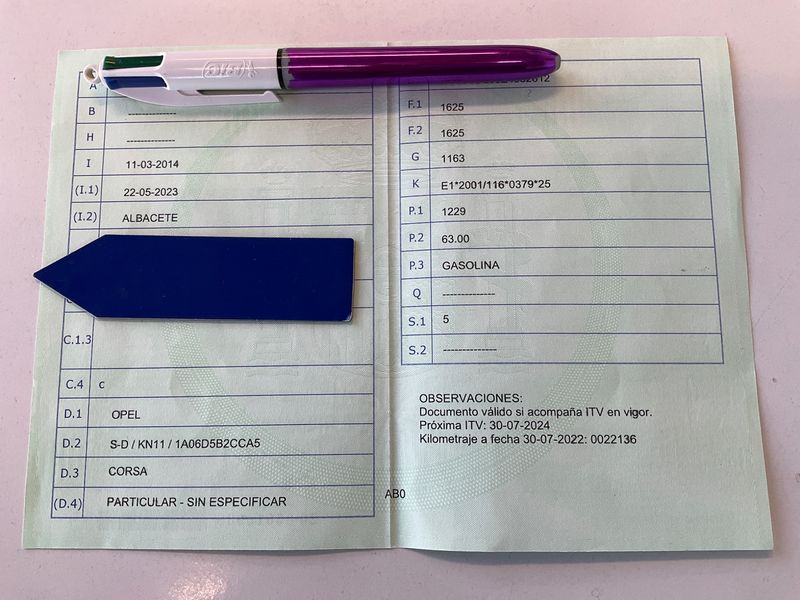 A
B --------------
H --------------
I 11-03-2014
(I.1) 22-05-2023
(I.2) ALBACETE
C.1.3
C.4 c
D.1 OPEL
D.2 S-D / KN11 / 1A06D5B2CCA5
D.3 CORSA
(D.4) PARTICULAR - SIN ESPECIFICAR
F.1 1625
F.2 1625
G 1163
K E1*2001/116*0379*25
P.1 1229
P.2 63.00
P.3 GASOLINA
Q --------------
S.1 5
S.2 --------------
OBSERVACIONES:
Documento válido si acompaña ITV en vigor.
Próxima ITV: 30-07-2024
Kilometraje a fecha 30-07-2022: 0022136
AB0